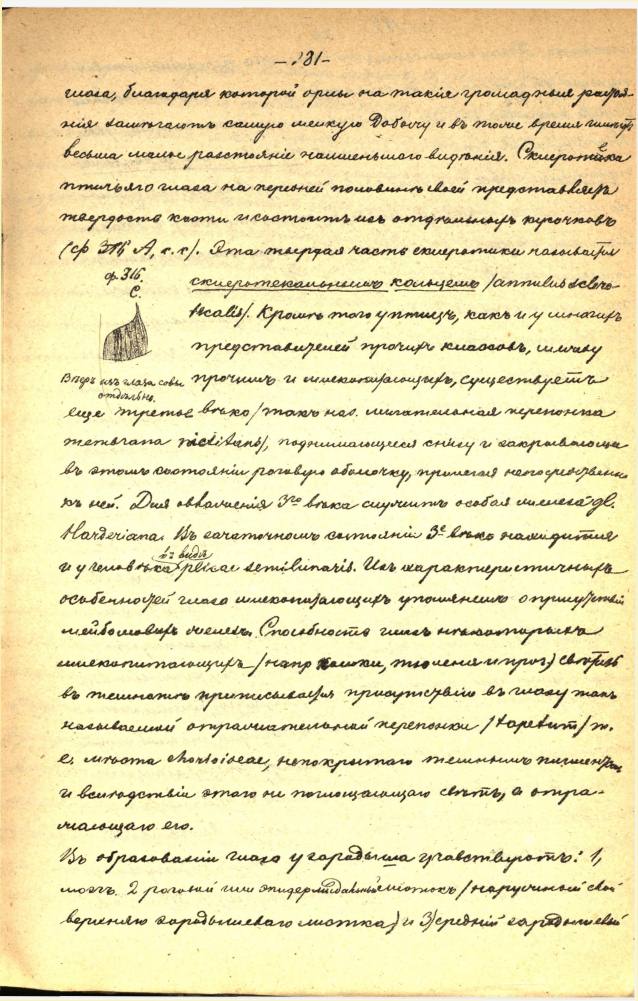 —281—
глаза, благодаря которой орлы на такія громадныя разстоя-
нія замѣчаютъ самую мелкую добычу и въ тоже время имѣютъ
весьма малое разстояніе наименьшаго видѣнія. Склеротика
птичьяго глаза на передней половинѣ своей представляетъ
твердость кости и состоитъ изъ отдѣльныхъ кусочковъ
(ф 315 А, с. с). Эта твердая часть склеротики называется
ф. 316.
С.
склеротекальнымъ кольцемъ /annulus sclero-
ticalis/. Кромѣ того у птицъ, какъ и у многихъ
представителей прочихъ классовъ, между
Впер. изъ глаза совы
отдѣльно.
прочимъ и млекопитающихъ, существуетъ
еще третье вѣко /такъ наз. мигательная перепонка
membrana nictitans/, поднимающееся снизу и закрывающее
въ этомъ состояніи роговую оболочку, прилегая непосредственно
къ ней. Для овлаженія 3го вѣка служитъ особая железа gl.
Harderiana. Въ зачаточномъ состояніи 3е вѣко находится
и у человѣка въ видѣ plicae semilunaris. Изъ характеристичныхъ
особенностей глаза млекопитающихъ упомянемъ о присутствіи
мейбомовыхъ железъ. Способность глазъ нѣкоторыхъ
млекопитающихъ /напр кошки, тюленя и проч) свѣтить
въ темнотѣ приписывается присутствію въ глазу такъ
называемой отражательной перепонки /tapetum/ т.
е. мѣста chorioideae, непокрытаго темнымъ пигментомъ
и вслѣдствіи этого не поглощающаго свѣтъ, а отра-
жающаго его.
Въ образованіи глаза у зародыша участвуютъ: 1,
мозгъ. 2 роговой или эпидермидальный листокъ /наружный слой
верхняго зародышеваго листка) и 3) средній зародышевый